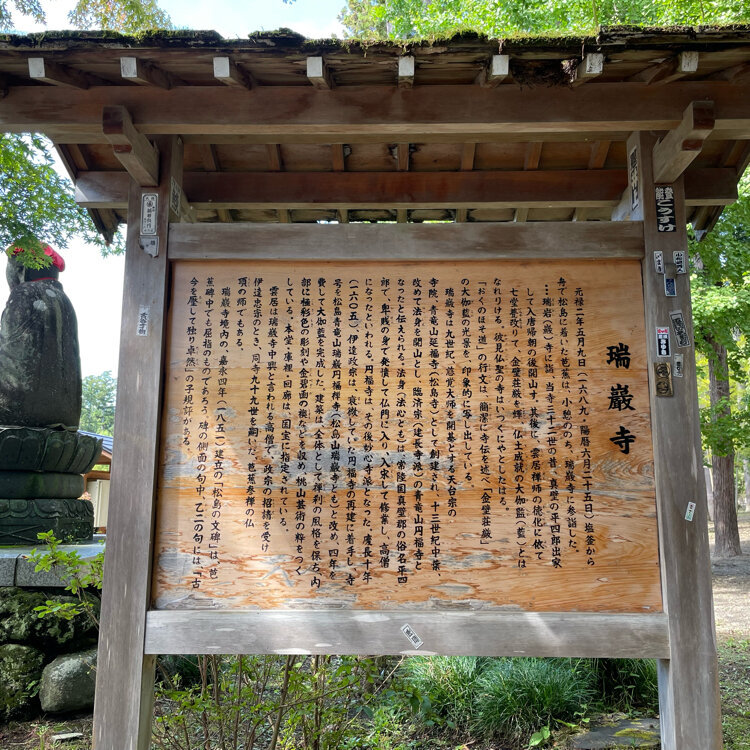 瑞巖寺
元禄二年五月九日（一六八九、陽暦六月二十五日）塩釜から
舟で松島に着いた芭蕉は、小憩ののち、瑞巌寺に参詣した。
…瑞岩（巌）寺に詣。当寺三十二世の昔、真壁の平四郎出家
して入唐帰朝の後開山す。其後に、雲居禅師の徳化に依て
七堂甍改りて、金壁荘厳光を輝、仏土成就の大伽藍とは
なれりける。彼見仏聖の寺はいづくにやとしたはる。
『おくのほそ道』の行文は、簡潔に寺伝を述べ「金壁荘厳」
の大伽藍の光景を、印象的に写し出している。
瑞巌寺は九世紀、慈覚大師を開基とする天台宗の
寺院、青竜山延福寺（松島寺）として創建され、十三世紀中葉、
改めて法身を開山とし、臨済宗（建長寺派）の青竜山円福寺と
なったと伝えられる。法身（法心とも）は、常陸国真壁郡の俗名平四
郎で、卑賎の身で発憤して仏門に入り、入宋して修業し、高僧
になったといわれる。円福寺は、その後妙心寺派となった。慶長十年
（一六〇五）、伊達政宗は、衰微していた円福寺の再建に着手し、寺
号を松島青竜山瑞巌円福禅寺（松島山瑞巌寺とも）と改め、四年を
費して大伽藍を完成した。建築は、全体として禅刹の風格を保ち、内
部に極彩色の彫刻や金碧画の襖などを収め、桃山芸術の粋をつく
している。本堂・庫裡・回廊は、国宝に指定されている。
雲居は瑞巌寺中興と言われる高僧で、政宗の招請を受け
伊達忠宗のとき、同寺九十九世を嗣いだ。芭蕉参禅の仏
頂の師でもある。
瑞巌寺境内の、嘉永四年（一八五一）建立の「松島の文碑」は、芭
蕉碑中でも屈指のものであろう。碑の側面の句中、乙二の句には「古
今を壓して独り卓然」の子規評がある。